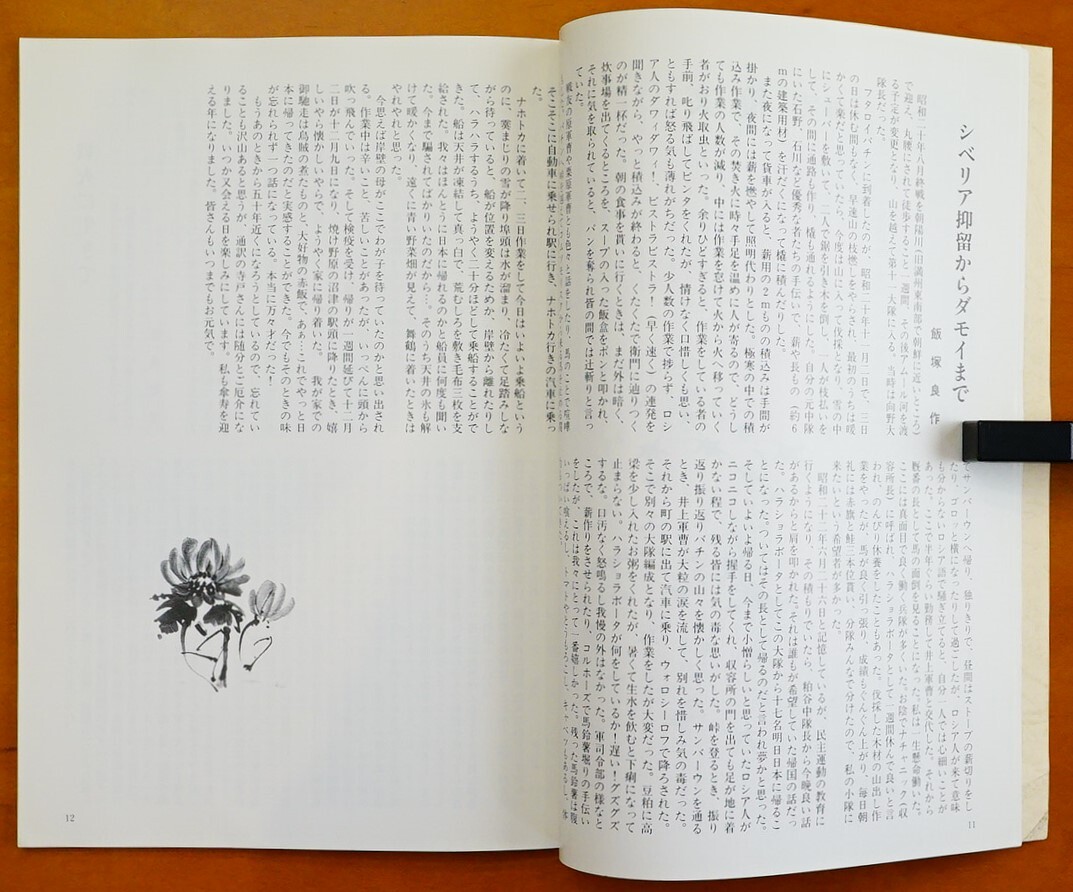 シベリア抑留からダモイまで
飯塚良作
昭和二十年八月終戦を朝陽川(旧満州東南部で朝鮮に近いところ)
で迎え、丸腰にされて徒歩すること一週間、その後アムール河を渡
る予定が変更となり、山を越えて第十一大隊に入る。当時は向野大
隊長だった。
フタロイバチンに到着したのが、昭和二十年十二月二日で、三日
の日は休む間もなく、早速山の枝燃しをやらされ、最初のうちは暖
かくて楽だと思っていたら、今度は山に入って伐採となり、雪の中
にシューバを敷いて、二人で鋸を引き木を倒し、一人が枝払いを
して、その間に通路も作り、橇も通れるようにした。自分の元中隊
にいた石野、石川など優秀な者たちの手伝いで、薪や長もの(約6
mの建築用材)を汗だくになって橇に積んだりした。
また夜になって貨車が入ると、薪用の2mもの積込みは手間が
掛かり、夜間には薪を燃やして照明代わりとした。極寒の中での積
込み作業で、その焚き火に時々手足を温めに人が寄るので、どうし
ても作業の人数が減り、中には作業を怠けて火から火へ移っていく
者がおり火取虫といった。余りひどすぎると、作業をしている者の
手前、叱り飛ばしてビンタをくれたが、情けなく口惜しくも思い、
ともすれば怒る気も薄れがちだった。少人数の作業で捗らず、ロシ
ア人のダワイダワイ!、ビストラビストラ!(早く速く)の連発を
聞きながら、やっと積込みが終わると、くたくたで衛門に辿りつく
のが精一杯だった。朝の食事を貰いに行くときは、まだ外は暗く、
炊事場を出てくるところを、スープの入った飯盒をポンと叩かれ、
それに気を取られていると、パンを奪られ皆の間では辻斬りと言っ
ていた。
でサンバーウンへ帰り、独りきりで、昼間はストーブの薪切りをし
たり、ゴロッと横になったりして過ごしたが、ロシア人が来て意味
も分からないロシア語で騒ぎ立てると、自分一人では心細いことが
あった。ここで半年ぐらい勤務して井上軍曹と交代した。それから
厩番の長として馬の面倒を見ることになった。私は一生懸命働いた。
ここには真面目で良く働く兵隊が多くいた。お陰でナチャニック(収
容所長)に呼ばれ、ハラショラボータとして一週間休んで良いと言
われ、のんびり休養をしたこともあった。伐採した木材の山出し作
業をやったが、馬が良く引っ張り、成績もぐんぐん上がり、毎日朝
礼には赤旗と鮭三本位貰い、分隊みんなで分けたので、私の小隊に
来たいという希望者が多かった。
昭和二十二年六月二十六日と記憶しているが、民主運動の教育に
行くようになり、その積もりでいたら、粕谷中隊長から今晩良い話
があるからと肩を叩かれた。それは誰もが希望していた帰国の話だっ
た。ハラショラボータとしてこの大隊から十七名明日日本に帰るこ
とになった。ついてはその長として帰るのだと言われ夢かと思った。
そしていよいよ帰る日、今まで小憎らしいと思っていたロシア人が
ニコニコしながら握手をしてくれ、収容所の門を出ても足が地に着
かない程で、残る皆には気の毒な思いがした。峠を登るとき、振り
返り振り返りバチンの山々を懐かしく思った。サンバーウンを通る
とき、井上軍曹が大粒の涙を流して、別れを惜しみ気の毒だった。
それから町の駅に出て汽車に乗り、ウォロシーロフで降ろされた。
そこで別々の大隊編成となり、作業をしたが大変だった。豆粕に高
梁を少し入れたお粥をくれたが、暑くて生水を飲むと下痢になって
止まらない。ハラショラボータが何をしているか!遅い!グズグズ
するな。口汚なく怒鳴るし我慢の外はなかった。軍司令部の様なと
ころで、薪作りをさせられたり、コルホーズで馬鈴薯堀りの手伝い
をしたが、これは我々にとって一番嬉しかった。残った馬鈴薯は腹
いっぱい喰えるし、トマトやとうもろこし、キャベツもあるし、
11
そこそこに自動車に乗せられ駅に行き、ナホトカ行きの汽車に乗っ
た。
ナホトカに着いて二、三日作業をして今日はいよいよ乗船という
のに、霙まじりの雪が降り埠頭は水が溜まり、冷たくて足踏みしな
がら待っていると、船が位置を変えるためか、岸壁から離れたりし
て、ハラハラするうち、ようやく三十分ほどして乗船することがで
きた。船は天井が凍結して真っ白で、荒むしろを敷き毛布三枚を支
給された。我々はほんとうに日本に帰れるのかと船員に何度も聞い
た。今まで騙されてばかりいたのだから…。そのうち天井の氷も解
けて暖かくなり、遠くに青い野菜畑が見えて、舞鶴に着いたときは
やれやれと思った。
今思えば岸壁の母がここでわが子を待っていたのかと思い出され
る。作業中は辛いこと、苦しいことがあったが、いっぺんに頭から
吹っ飛んでいった。そして検疫を受け、帰りが一週間延びて十二月
二日が十二月九日になり、焼け野原の沼津の駅頭に降りたとき、嬉
しいやら懐かしいやらで、ようやく家に帰り着いた。我が家での
御馳走は烏賊の煮たものと、大好物の赤飯で、ああ…これでやっと日
本に帰ってきたのだと実感することができた。今でもそのときの味
が忘れられず一つ話になっている。本当に万々才だった!
もうあのときから五十年近くになろうとしているので、忘れてい
ることも沢山あると思うが、通訳の寺戸さんには随分とご厄介にな
りました。いつか又会える日を楽しみにしています。私も傘寿を迎
える年になりました。皆さんもいつまでもお元気で。
12